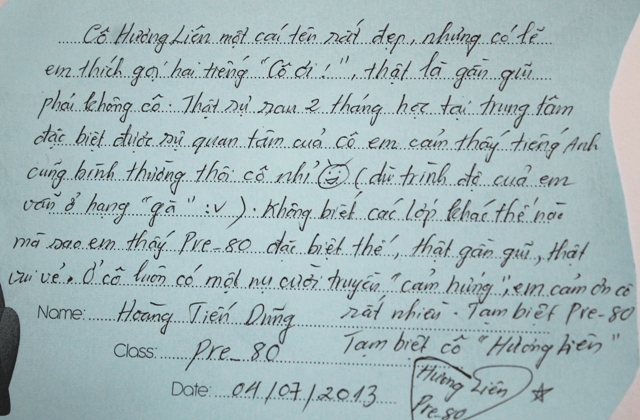 Cô Hương Liên một cái tên rất đẹp, nhưng có lẽ
em thích gọi hai tiếng "Cô ơi!", thật là gần gũi
phải không cô. Thật sự sau 2 tháng học tại trung tâm
đặc biệt được sự quan tâm của cô em cảm thấy tiếng Anh
cũng bình thường thôi cô nhỉ (dù trình độ của em
vẫn ở hạng "gà" :v). Không biết các lớp khác thế nào
mà sao em thấy Pre-80 đặc biệt thế, thật gần gũi, thật
vui vẻ. Ở cô luôn có một nụ cười truyền "cảm hứng", em cảm ơn cô
rất nhiều. Tạm biệt Pre-80
Name: Hoàng Tiến Dũng
Tạm biệt cô "Hương Liên"
Class: Pre-80
Date: 04/07/2013
Hương Liên
Pre-80